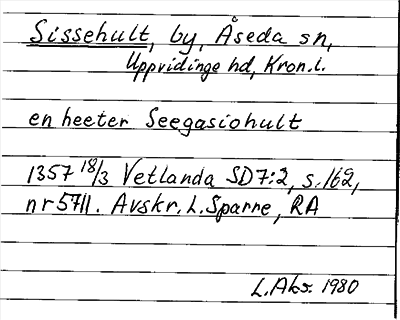 Sissehult, by, Åseda sn,
Uppvidinge hd, Kron.l.
en heeter Seegasiohult
1357 18/3 Vetlanda SD7:2, s.162,
nr 5711. Avskr. L. Sparre, RA
L.Abs. 1980